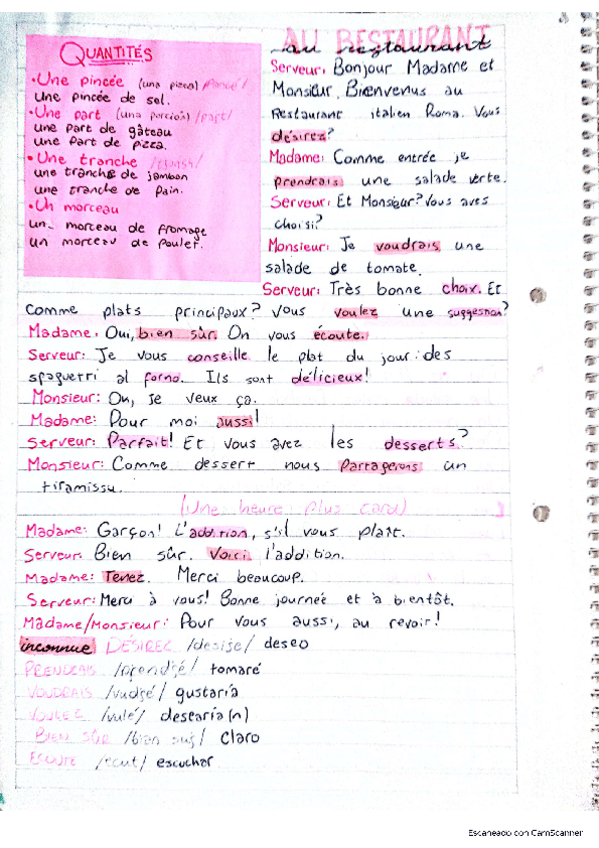 QUANTITÉS
• Une pincée (una pizca) /pansé/
Une pincée de sel.
• Une part (una porción) /part/
une part de gâteau
une part de pizza.
• Une tranche
une tranche de jambon
une tranche de pain.
• Un morceau
un morceau de fromage
un morceau de poulet.
AU RESTAURANT
au restaurant
Serveur: Bonjour Madame et
Monsieur. Bienvenus au
Restaurant italien Roma. Vous
désirez?
Madame: Comme entrée je
prendrais une salade verte.
Serveur: Et Monsieur? Vous avez
choisi?
Monsieur: Je voudrais une
salade de tomate.
Serveur: Très bonne choix. Et
comme plats principaux? Vous voulez une suggestion?
Madame: Oui, bien sûr. On vous écoute.
Serveur: Je vous conseille le plat du jour: des
spaguetti al forno. Ils sont délicieux!
Monsieur: Oh, je veux ça.
Madame: Pour moi aussi!
Serveur: Parfait! Et vous avez les desserts?
Monsieur: Comme dessert nous partagerons un
tiramissu.
(Une heure plus tard)
Madame: Garçon! L'addition, s'il vous plaît.
Serveur: Bien sûr. Voici l'addition.
Madame: Tenez. Merci beaucoup.
Serveur: Merci à vous! Bonne journée et à bientôt.
Madame/Monsieur: Pour vous aussi, au revoir!
inconnue DÉSIREZ /desise/ deseo
PRENDRAIS /prendjé/ tomaré
VOUDRAIS /vudjé/ gustaría
VOULEZ /vulé/ desearía(n)
BIEN SÛR /bian suj/ claro
ECOUTE /ecut/ escuchar
Escaneado con CamScanner